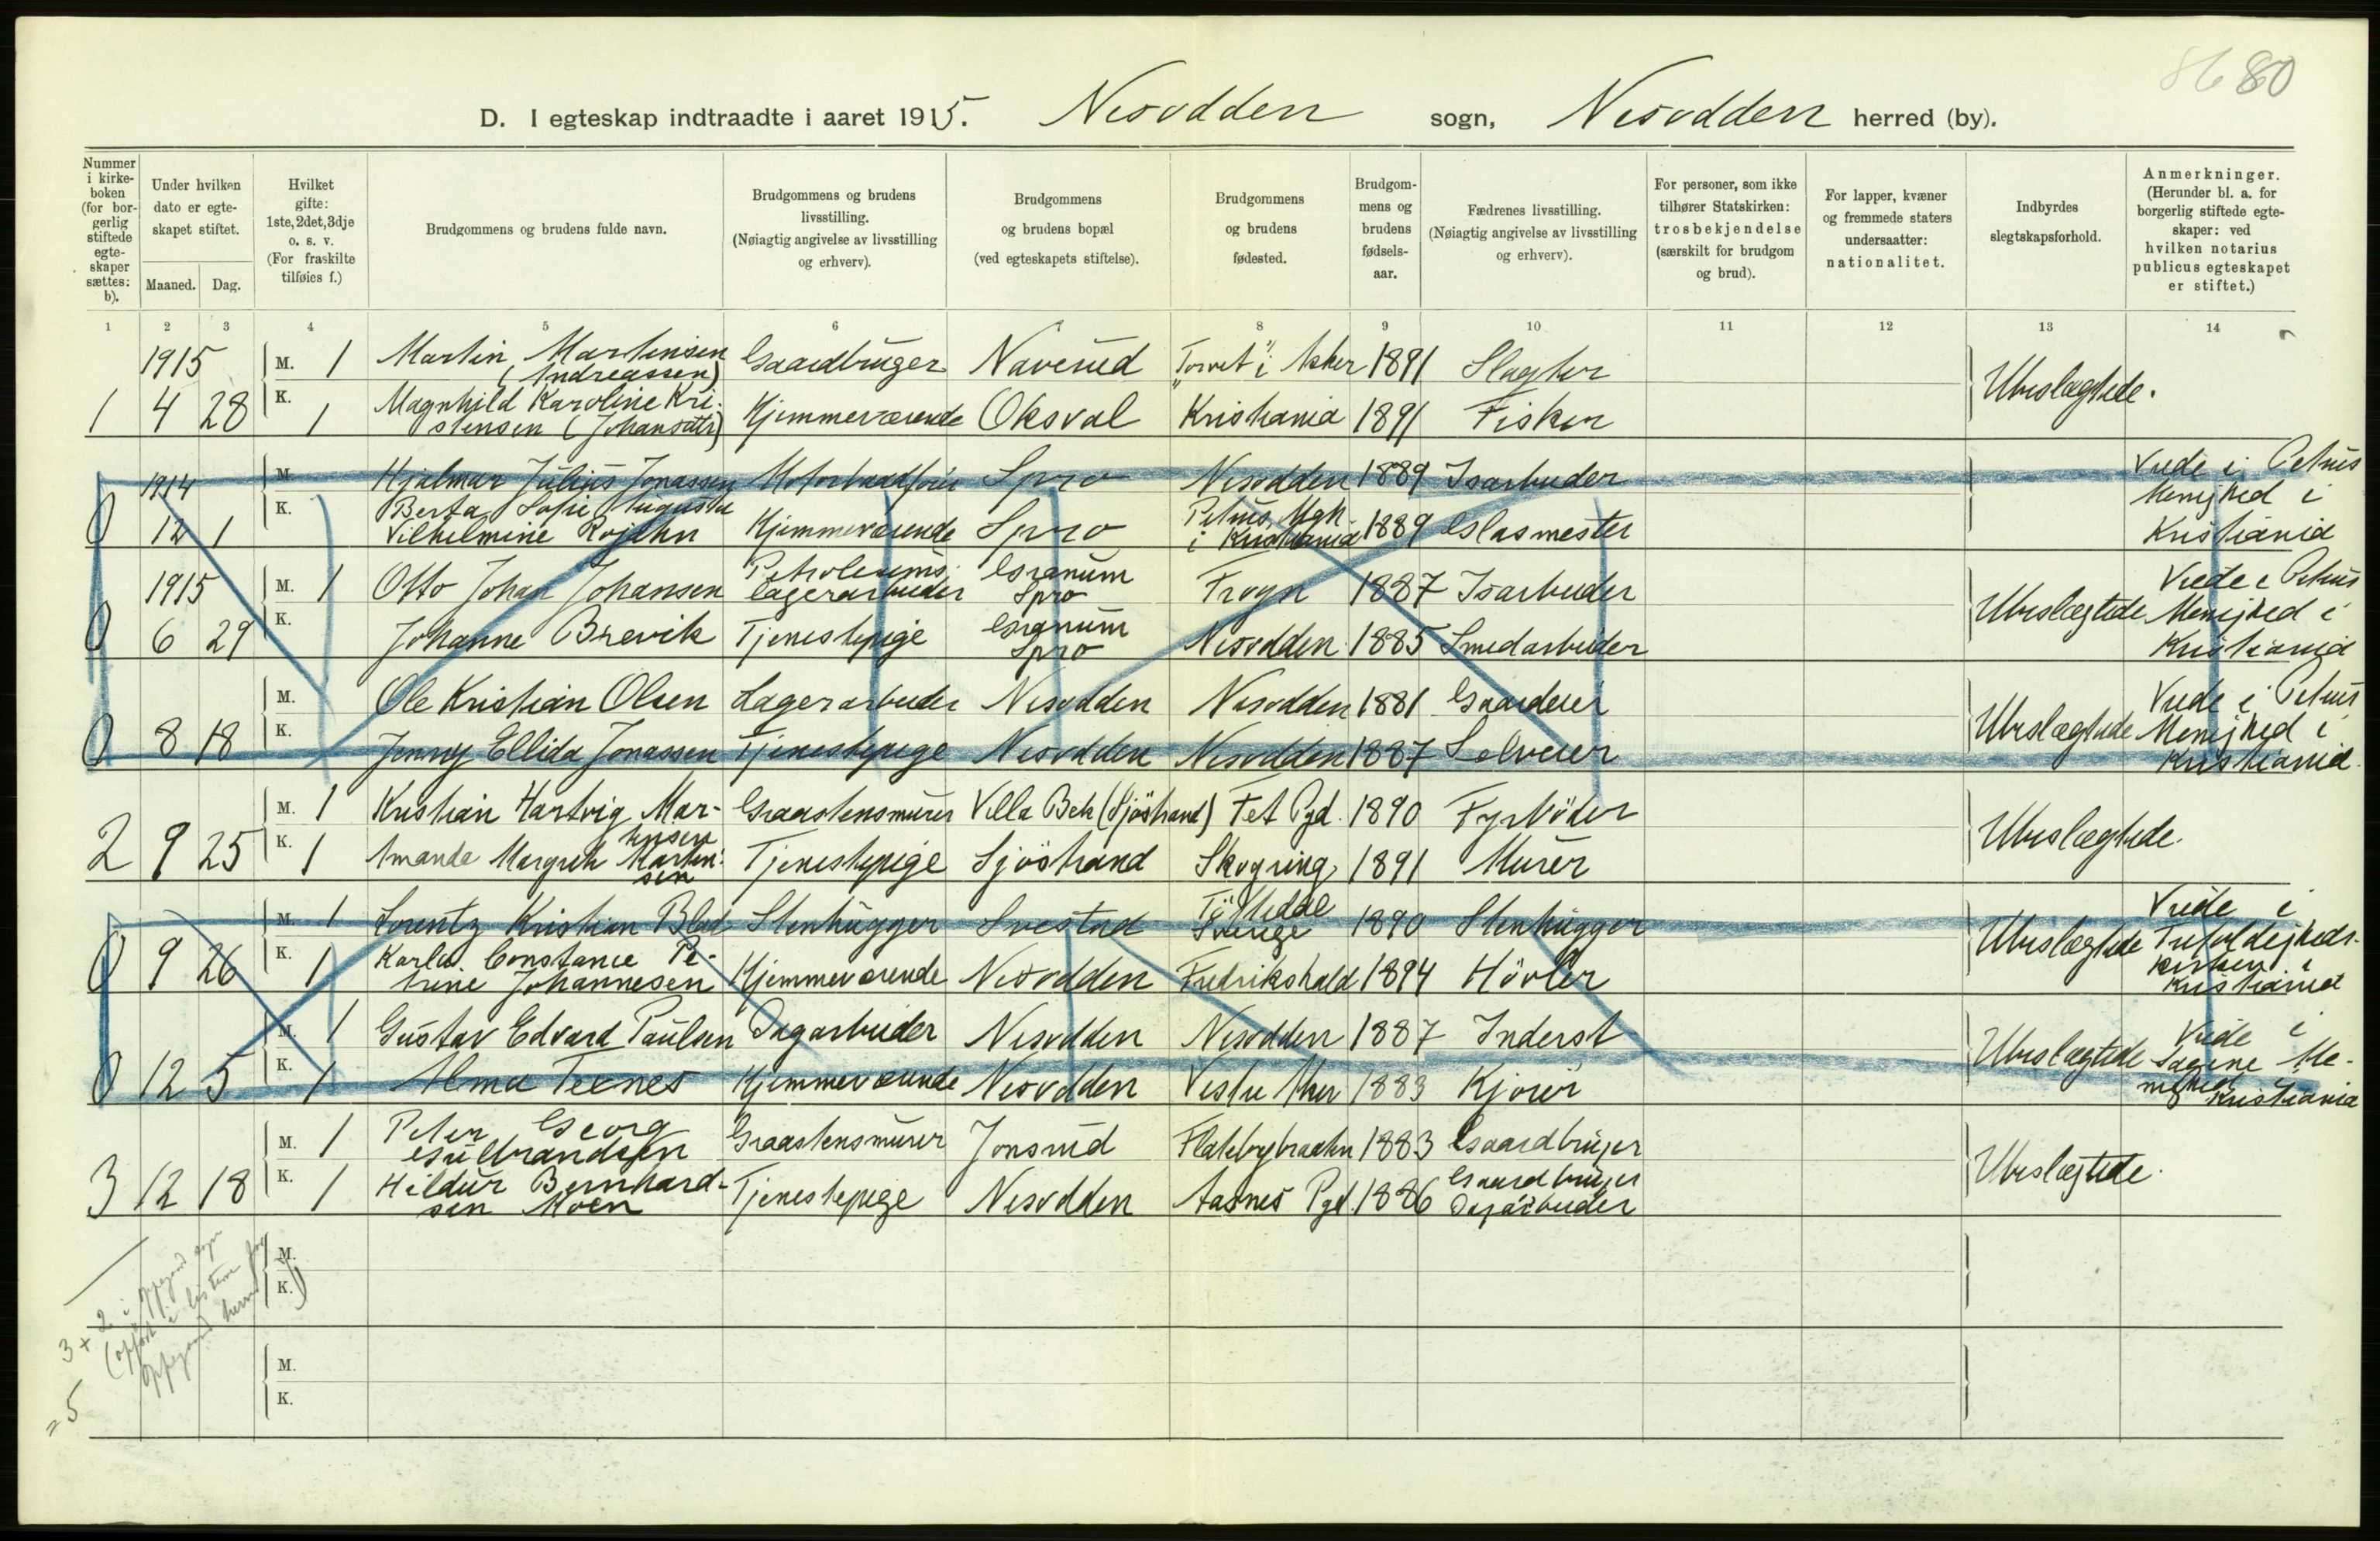 8680
D. I egteskap indtraadte i aaret 1915. Nesodden sogn, Nesodden herred (by).
Nummer i kirkeboken (for borgerlig stiftede egteskaper sættes: b).
Under hvilken dato er egteskapet stiftet.
Maaned. Dag.
Hvilket gifte: 1ste, 2det, 3dje o. s. v. (For fraskilte tilføies f.)
Brudgommens og brudens fulde navn.
Brudgommens og brudens livsstilling. (Nøiagtig angivelse av livsstilling og erhverv).
Brudgommens og brudens bopæl (ved egteskapets stiftelse).
Brudgommens og brudens fødested.
Brudgommens og brudens fødselsaar.
Fædrenes livsstilling. (Nøiagtig angivelse av livsstilling og erhverv).
For personer, som ikke tilhører Statskirken: trosbekjendelse (særskilt for brudgom og brud).
For lapper, kvæner og fremmede staters undersaatter: nationalitet.
Indbyrdes slegtskapsforhold.
Anmerkninger. (Herunder bl. a. for borgerlig stiftede egteskaper: ved hvilken notarius publicus egteskapet er stiftet.)
1 2 3 4 5 6 7 8 9 10 11 12 13 14
1915 M. 1 Martin Martinsen (Andreassen) Gaardbruger Naverud "Torvet" i Asker 1891 Slagter
1 4 28 K. 1 Magnhild Karoline Kristensen (Johansdtr) Hjemmeværende Oksval Kristiania 1891 Fisker Ubeslægtede.
1914 M. Hjalmar Julius Jonassen Motorbaadfører Spro Nesodden 1889 Isarbeider
0 12 1 K. Berta Sofie Augusta Vilhelmine Rojahn Hjemmeværende Spro Petrus Mgh. i Kristiania 1889 Glasmester Viede i Petrus Menighed i Kristiania
1915 M. 1 Otto Johan Johansen Petroleumslagerarbeider Granum Spro Frogn 1887 Isarbeider
0 6 29 K. Johanne Brevik Tjenestepige Granum Spro Nesodden 1885 Smedarbeider Ubeslægtede Viede i Petrus Menighed i Kristiania
M. Ole Kristian Olsen Lagerarbeider Nesodden Nesodden 1881 Gaardeier
0 8 18 K. Jenny Ellida Jonassen Tjenestepige Nesodden Nesodden 1887 Selveier Ubeslægtede Viede i Petrus Menighed i Kristiania.
M. 1 Kristian Hartvig Martinsen Graastensmurer Villa Bek (Sjöstrand) Fet Pgd. 1890 Fyrböder
2 9 25 K. 1 Amanda Margrete Martinsen Tjenestepige Sjöstrand Skogring 1891 Murer Ubeslægtede.
M. 1 Lorentz Kristian Blad Stenhugger Svestad Sverige 1890 Stenhugger
0 9 26 K. 1 Karla Constance Petrine Johannesen Hjemmeværende Nesodden Fredrikshald 1894 Hövler Ubeslægtede Viede i Trefoldighedskirken i Kristiania
M. 1 Gustav Edvard Paulsen Dagarbeider Nesodden Nesodden 1887 Inderst
0 12 5 K. 1 Alma Teenes Hjemmeværende Nesodden Vestre Aker 1883 Kjører Ubeslægtede Viede i Sagene Menighed Kristiania
M. 1 Peter Georg Gulbrandsen Graastensmurer Jonsrud 1883 Gaardbruger
3 12 18 K. 1 Hildur Bernhardsen Moen Tjenestepige Nesodden Aasnes Pgd. 1886 Gaardbruger Dagarbeider Ubeslægtede.
M.
K.
M.
K.
3 + 2 i Oppegaard sogn
(opført i listerne for
Oppegaard herred)
= 5